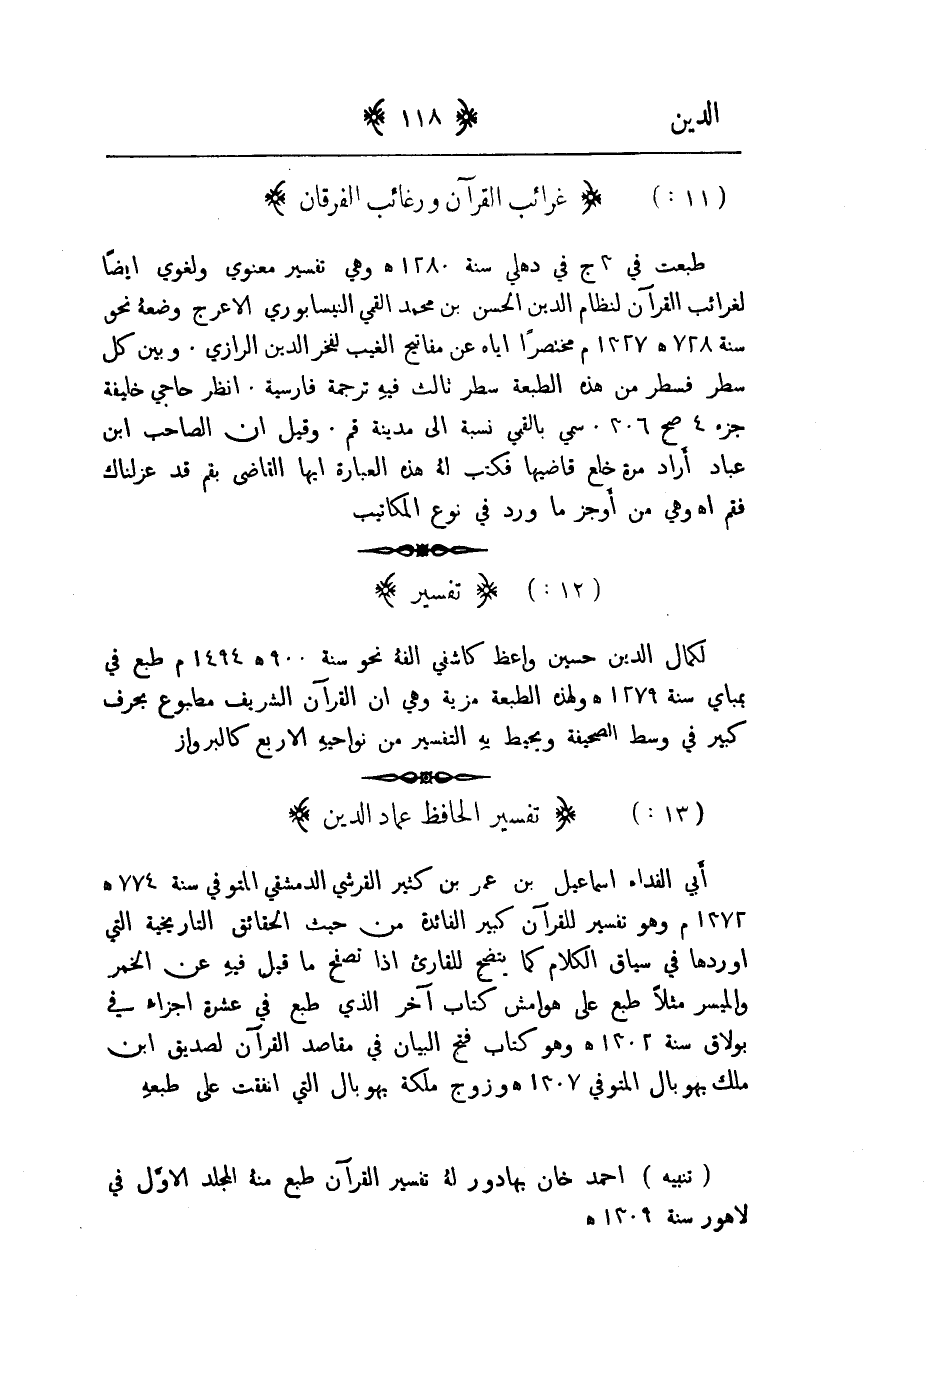 الدين ﴿ ١١٨ ﴾
( ١١ : ) ﴿ غرائب القرآن ورغائب الفرقان ﴾
طبعت في ٣ ج في دهلي سنة ١٢٨٠ ه وهي تفسير معنوي ولغوي ايضًا
لغرائب القرآن لنظام الدين الحسن بن محمد القمي النيسابوري الاعرج وضعهُ نحو
سنة ٧٢٨ ه ١٣٢٧ م مختصرًا اياه عن مفاتيح الغيب لفخر الدين الرازي . وبين كل
سطر فسطر من هذه الطبعة سطر ثالث فيهِ ترجمة فارسية . انظر حاجي خليفة
جزء ٤ صح ٣٠٦ . سمي بالقمي نسبة الى مدينة قم . وقيل ان الصاحب ابن
عباد أراد مرة خلع قاضيها فكتب لهُ هذه العبارة ايها القاضى بقم قد عزلناك
فقم اه وهي من أوجز ما ورد في نوع المكاتيب
( ١٢ : ) ﴿ تفسير ﴾
لكمال الدين حسين واعظ كاشفي الفهُ نحو سنة ٩٠٠ ه ١٤٩٤ م طبع في
بمباي سنة ١٢٧٩ ه ولهذه الطبعة مزية وهي ان القرآن الشريف مطبوع بحرف
كبير في وسط الصحيفة ويحيط بهِ التفسير من نواحيهِ الاربع كالبرواز
( ١٣ : ) ﴿ تفسير الحافظ عماد الدين ﴾
أبي الفداء اسماعيل بن عمر بن كثير القرشي الدمشقي المتوفي سنة ٧٧٤ ه
١٣٧٢ م وهو تفسير للقرآن كبير الفائدة من حيث الحقائق التاريخية التي
اوردها في سياق الكلام كما يتضح للقارئ اذا تصفح ما قيل فيهِ عن الخمر
والميسر مثلاً طبع على هوامش كتاب آخر الذي طبع في عشرة اجزاء في
بولاق سنة ١٣٠٢ ه وهو كتاب فتح البيان في مقاصد القرآن لصديق ابن
ملك بهوبال المتوفي ١٣٠٧ ه وزوج ملكة بهوبال التي انفقت على طبعهِ
( تنبيه ) احمد خان بهادور لهُ تفسير القرآن طبع منهُ المجلد الاوّل في
لاهور سنة ١٣٠٩ ه